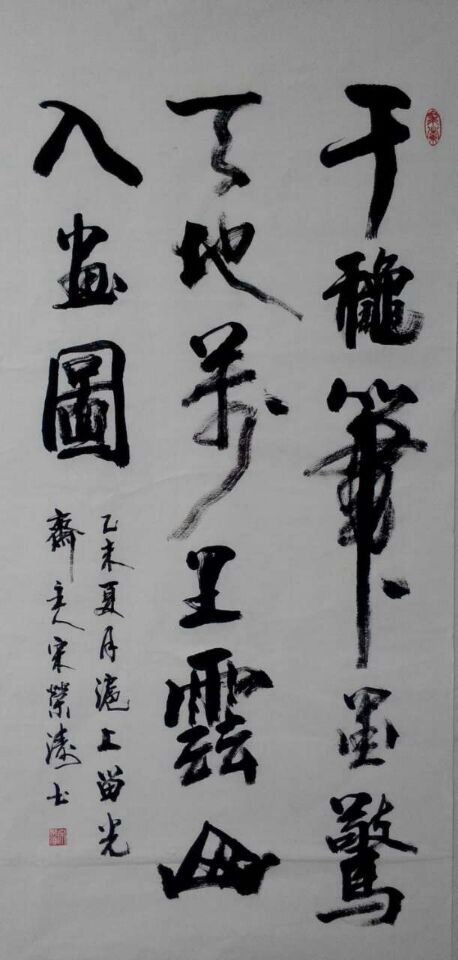 千龝筆墨驚
天地萬里雲山
入畫圖
乙未夏月滬上留光
齋主人宋榮濤书